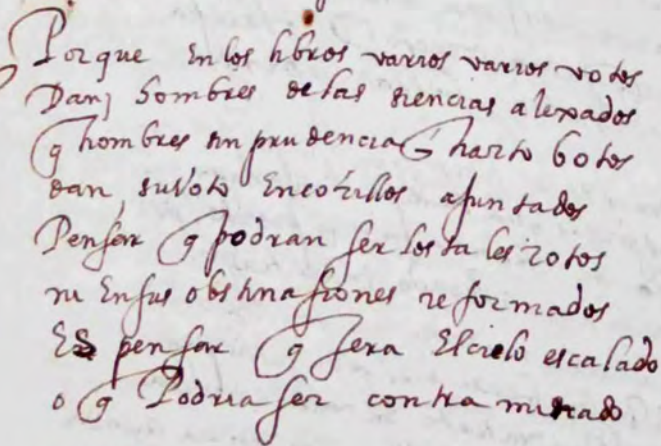 Porque en los libros varios varios votos
Dan, hombres de las siencias alexados
q hombres sin prudencia y harto botos
dan, su voto en corrillos ajuntados
Pensar q podran ser los tales rotos
ni en sus obstinasiones reformados
Es pensar q sera El cielo escalado
o q Podria ser contra minado